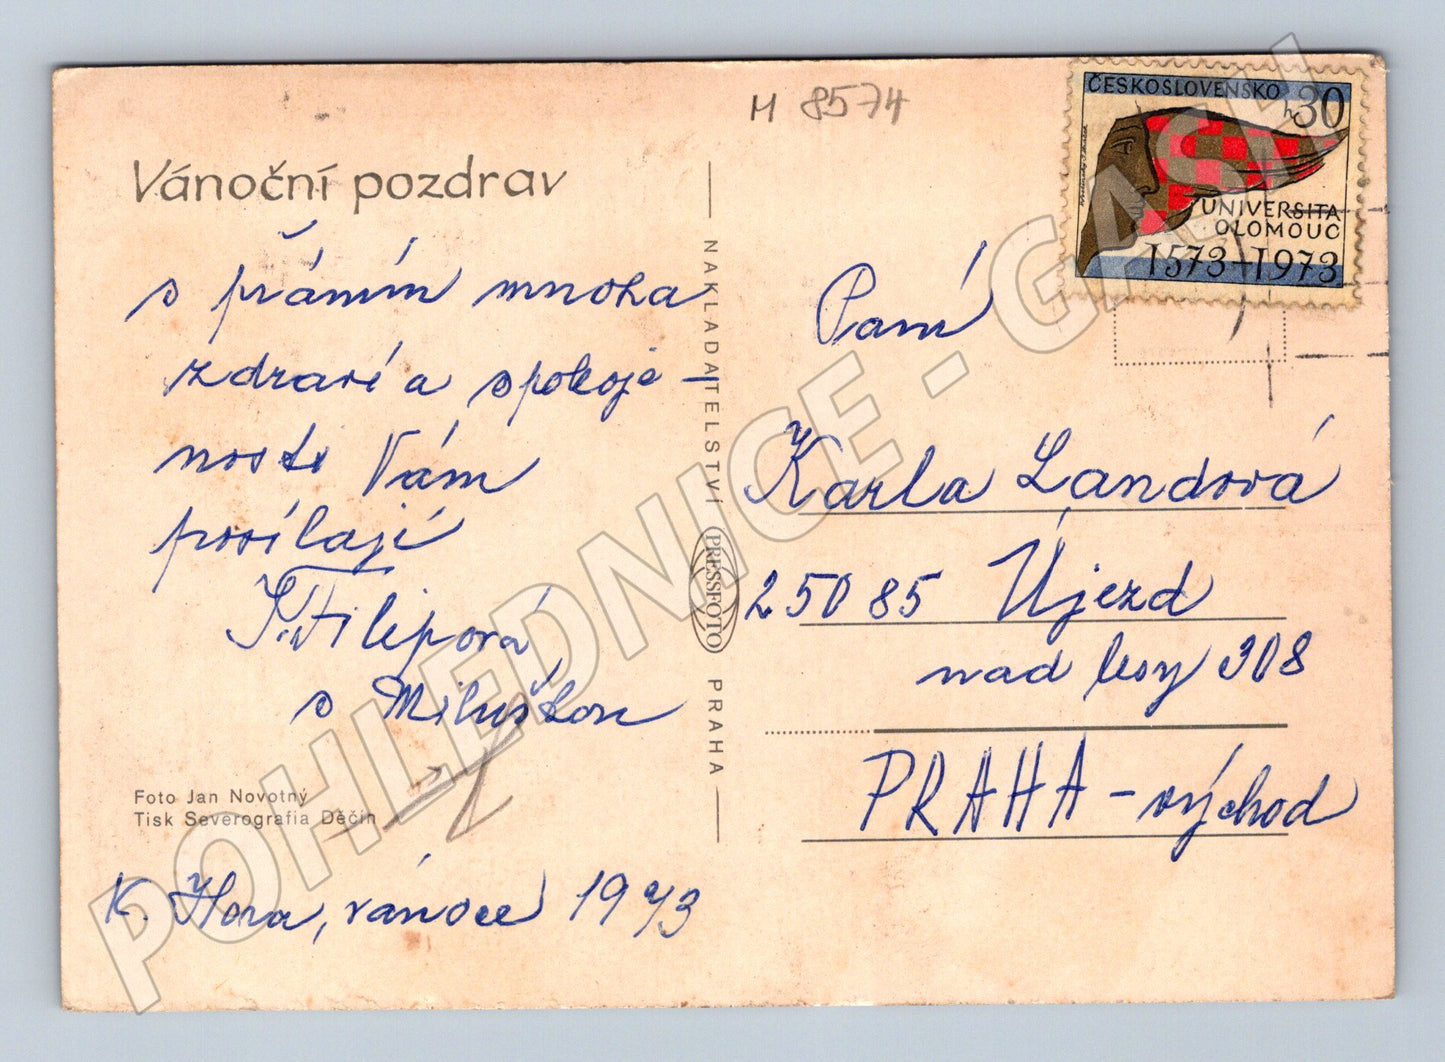 M 8574
Vánoční pozdrav
s přáním mnoha
zdraví a spokoje-
nosti Vám
posílají
Filipová
s Miluškou
Foto Jan Novotný
Tisk Severografia Děčín
K. Hora, vánoce 1973
NAKLADATELSTVÍ PRESSFOTO PRAHA
ČESKOSLOVENSKO
h 30
UNIVERSITA
OLOMOUC
1573-1973
Paní
Karla Landová
25085 Újezd
nad lesy 308
PRAHA - východ
POHLEDNICE - GASH